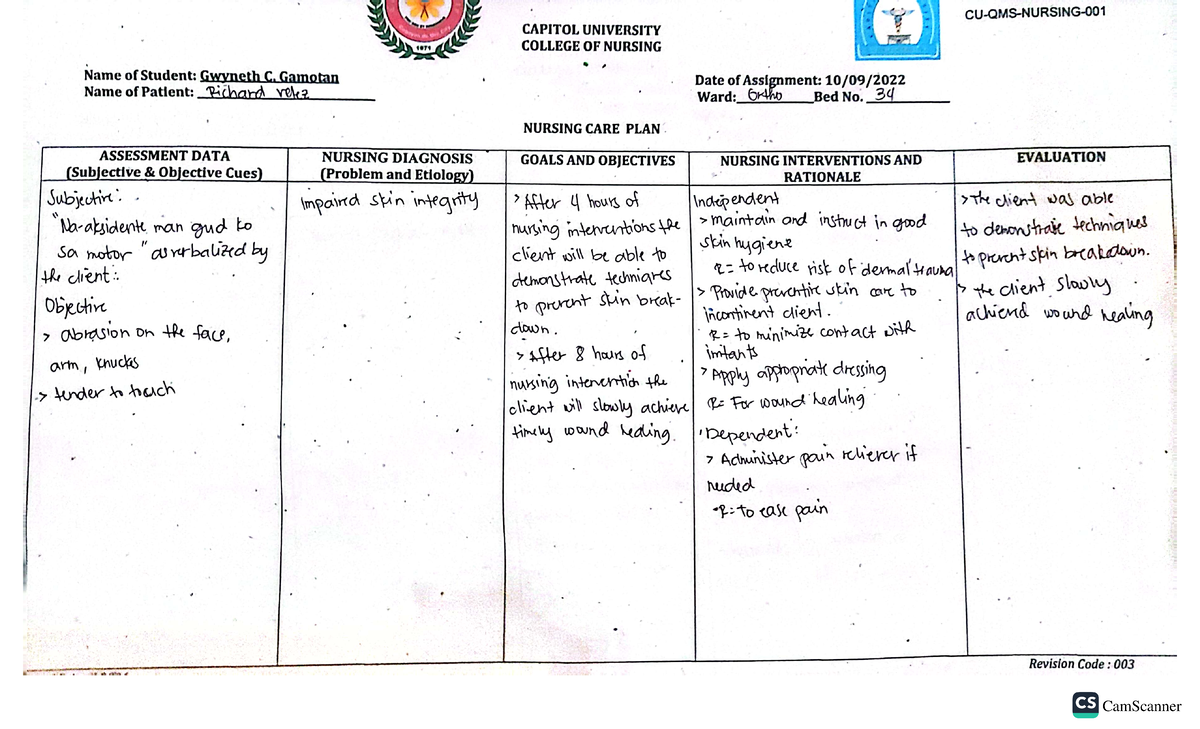 CU-QMS-NURSING-001
CAPITOL UNIVERSITY
COLLEGE OF NURSING
1971
Name of Student: Gwyneth C. Gamotan
Name of Patient: Richard velez
Date of Assignment: 10/09/2022
Ward: Ortho Bed No. 34
NURSING CARE PLAN
ASSESSMENT DATA
(Subjective & Objective Cues)
Subjective:
"Na-aksidente man gud ko
sa motor" as verbalized by
the client:
Objective
> abrasion on the face,
arm, knucks
> tender to touch
NURSING DIAGNOSIS
(Problem and Etiology)
Impaired skin integrity
GOALS AND OBJECTIVES
> After 4 hours of
nursing interventions the
client will be able to
demonstrate techniques
to prevent skin break-
down.
> After 8 hours of
nursing intervention the
client will slowly achieve
timely wound healing.
NURSING INTERVENTIONS AND
RATIONALE
Independent
> maintain and instruct in good
skin hygiene
R= to reduce risk of dermal trauma
> Provide preventive skin care to
incontinent client.
R= to minimize contact with
irritants
> Apply appropriate dressing
R= For wound healing
Dependent:
> Administer pain reliever if
needed
R= to ease pain
EVALUATION
> The client was able
to demonstrate techniques
to prevent skin breakdown.
> The client slowly
achievd wound healing
Revision Code : 003
CS CamScanner